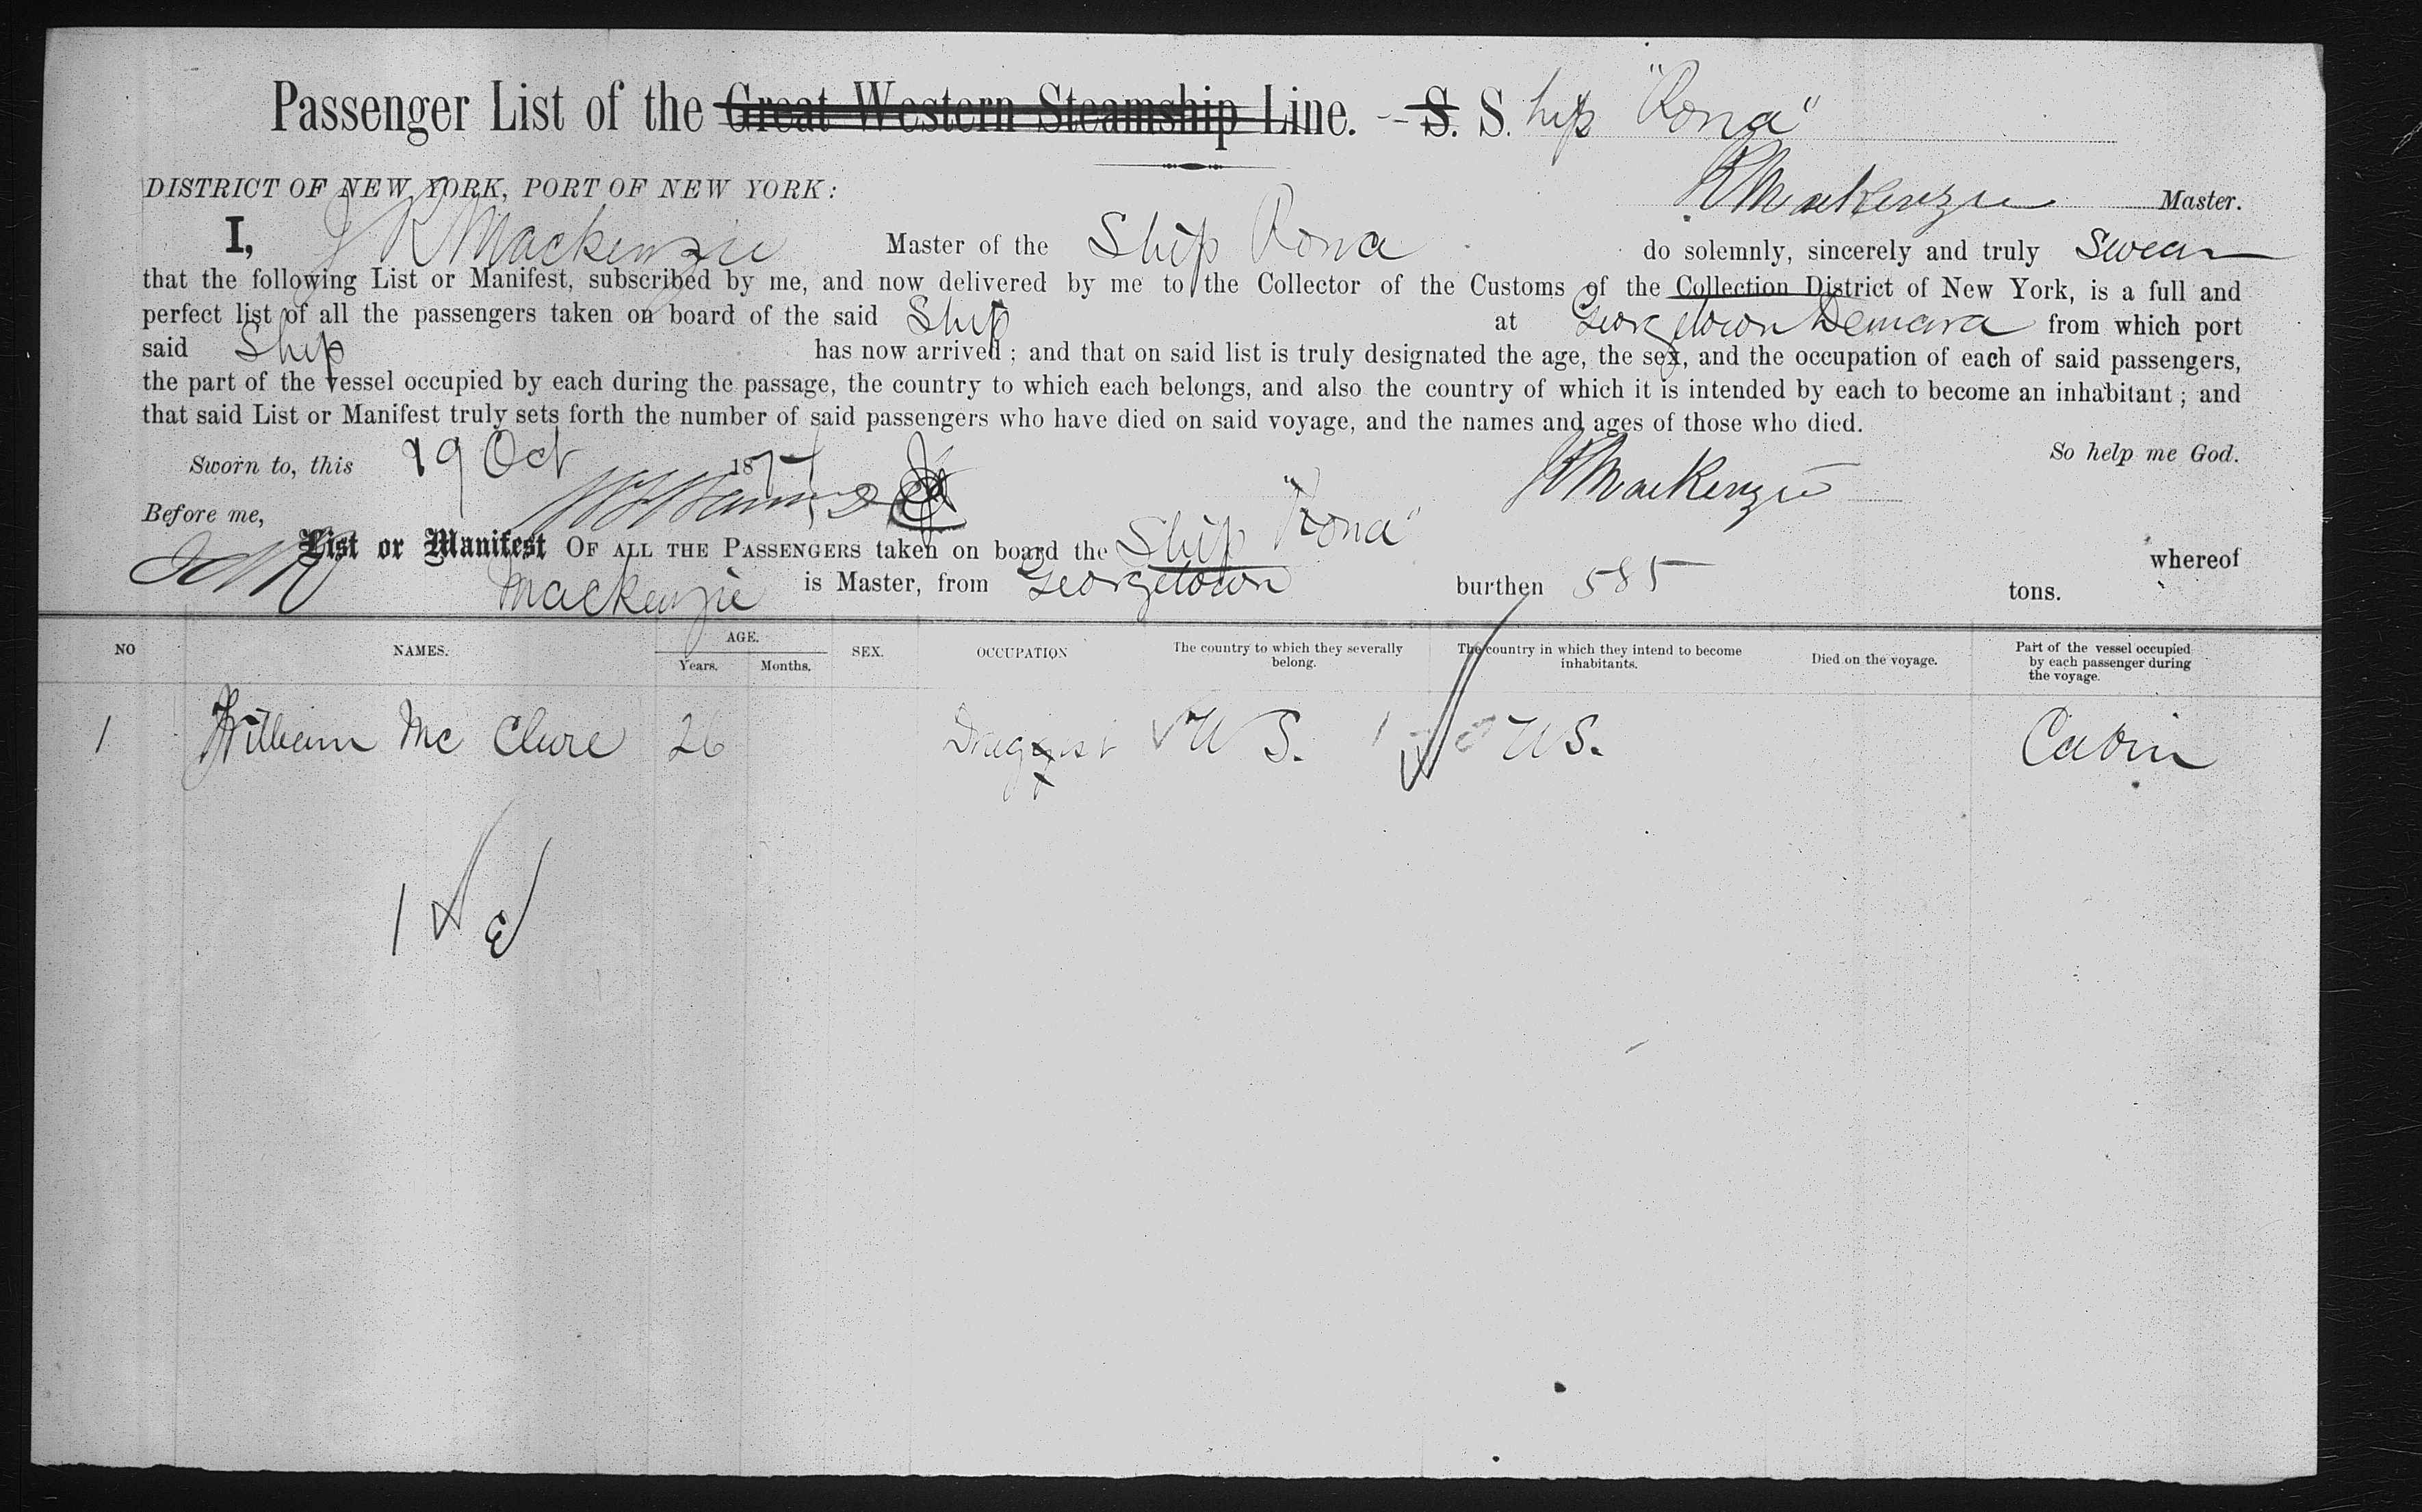 Passenger List of the Great Western Steamship Line. -- S. S. hip "Rona"
DISTRICT OF NEW YORK, PORT OF NEW YORK:
R Mackenzie Master.
I, J R Mackenzie Master of the Ship Rona do solemnly, sincerely and truly swear
that the following List or Manifest, subscribed by me, and now delivered by me to the Collector of the Customs of the Collection District of New York, is a full and
perfect list of all the passengers taken on board of the said Ship at Georgetown Demara from which port
said Ship has now arrived; and that on said list is truly designated the age, the sex, and the occupation of each of said passengers,
the part of the vessel occupied by each during the passage, the country to which each belongs, and also the country of which it is intended by each to become an inhabitant; and
that said List or Manifest truly sets forth the number of said passengers who have died on said voyage, and the names and ages of those who died.
So help me God.
Sworn to, this 19 Oct 187
JR Mackenzie
Before me,
List or Manifest OF ALL THE PASSENGERS taken on board the Ship "Rona" whereof
Mackenzie is Master, from Georgetown burthen 585 tons.
NO NAMES. AGE. Years. Months. SEX. OCCUPATION The country to which they severally belong. The country in which they intend to become inhabitants. Died on the voyage. Part of the vessel occupied by each passenger during the voyage.
1 William Mc Clure 26 Druggist U S. U S. Cabin